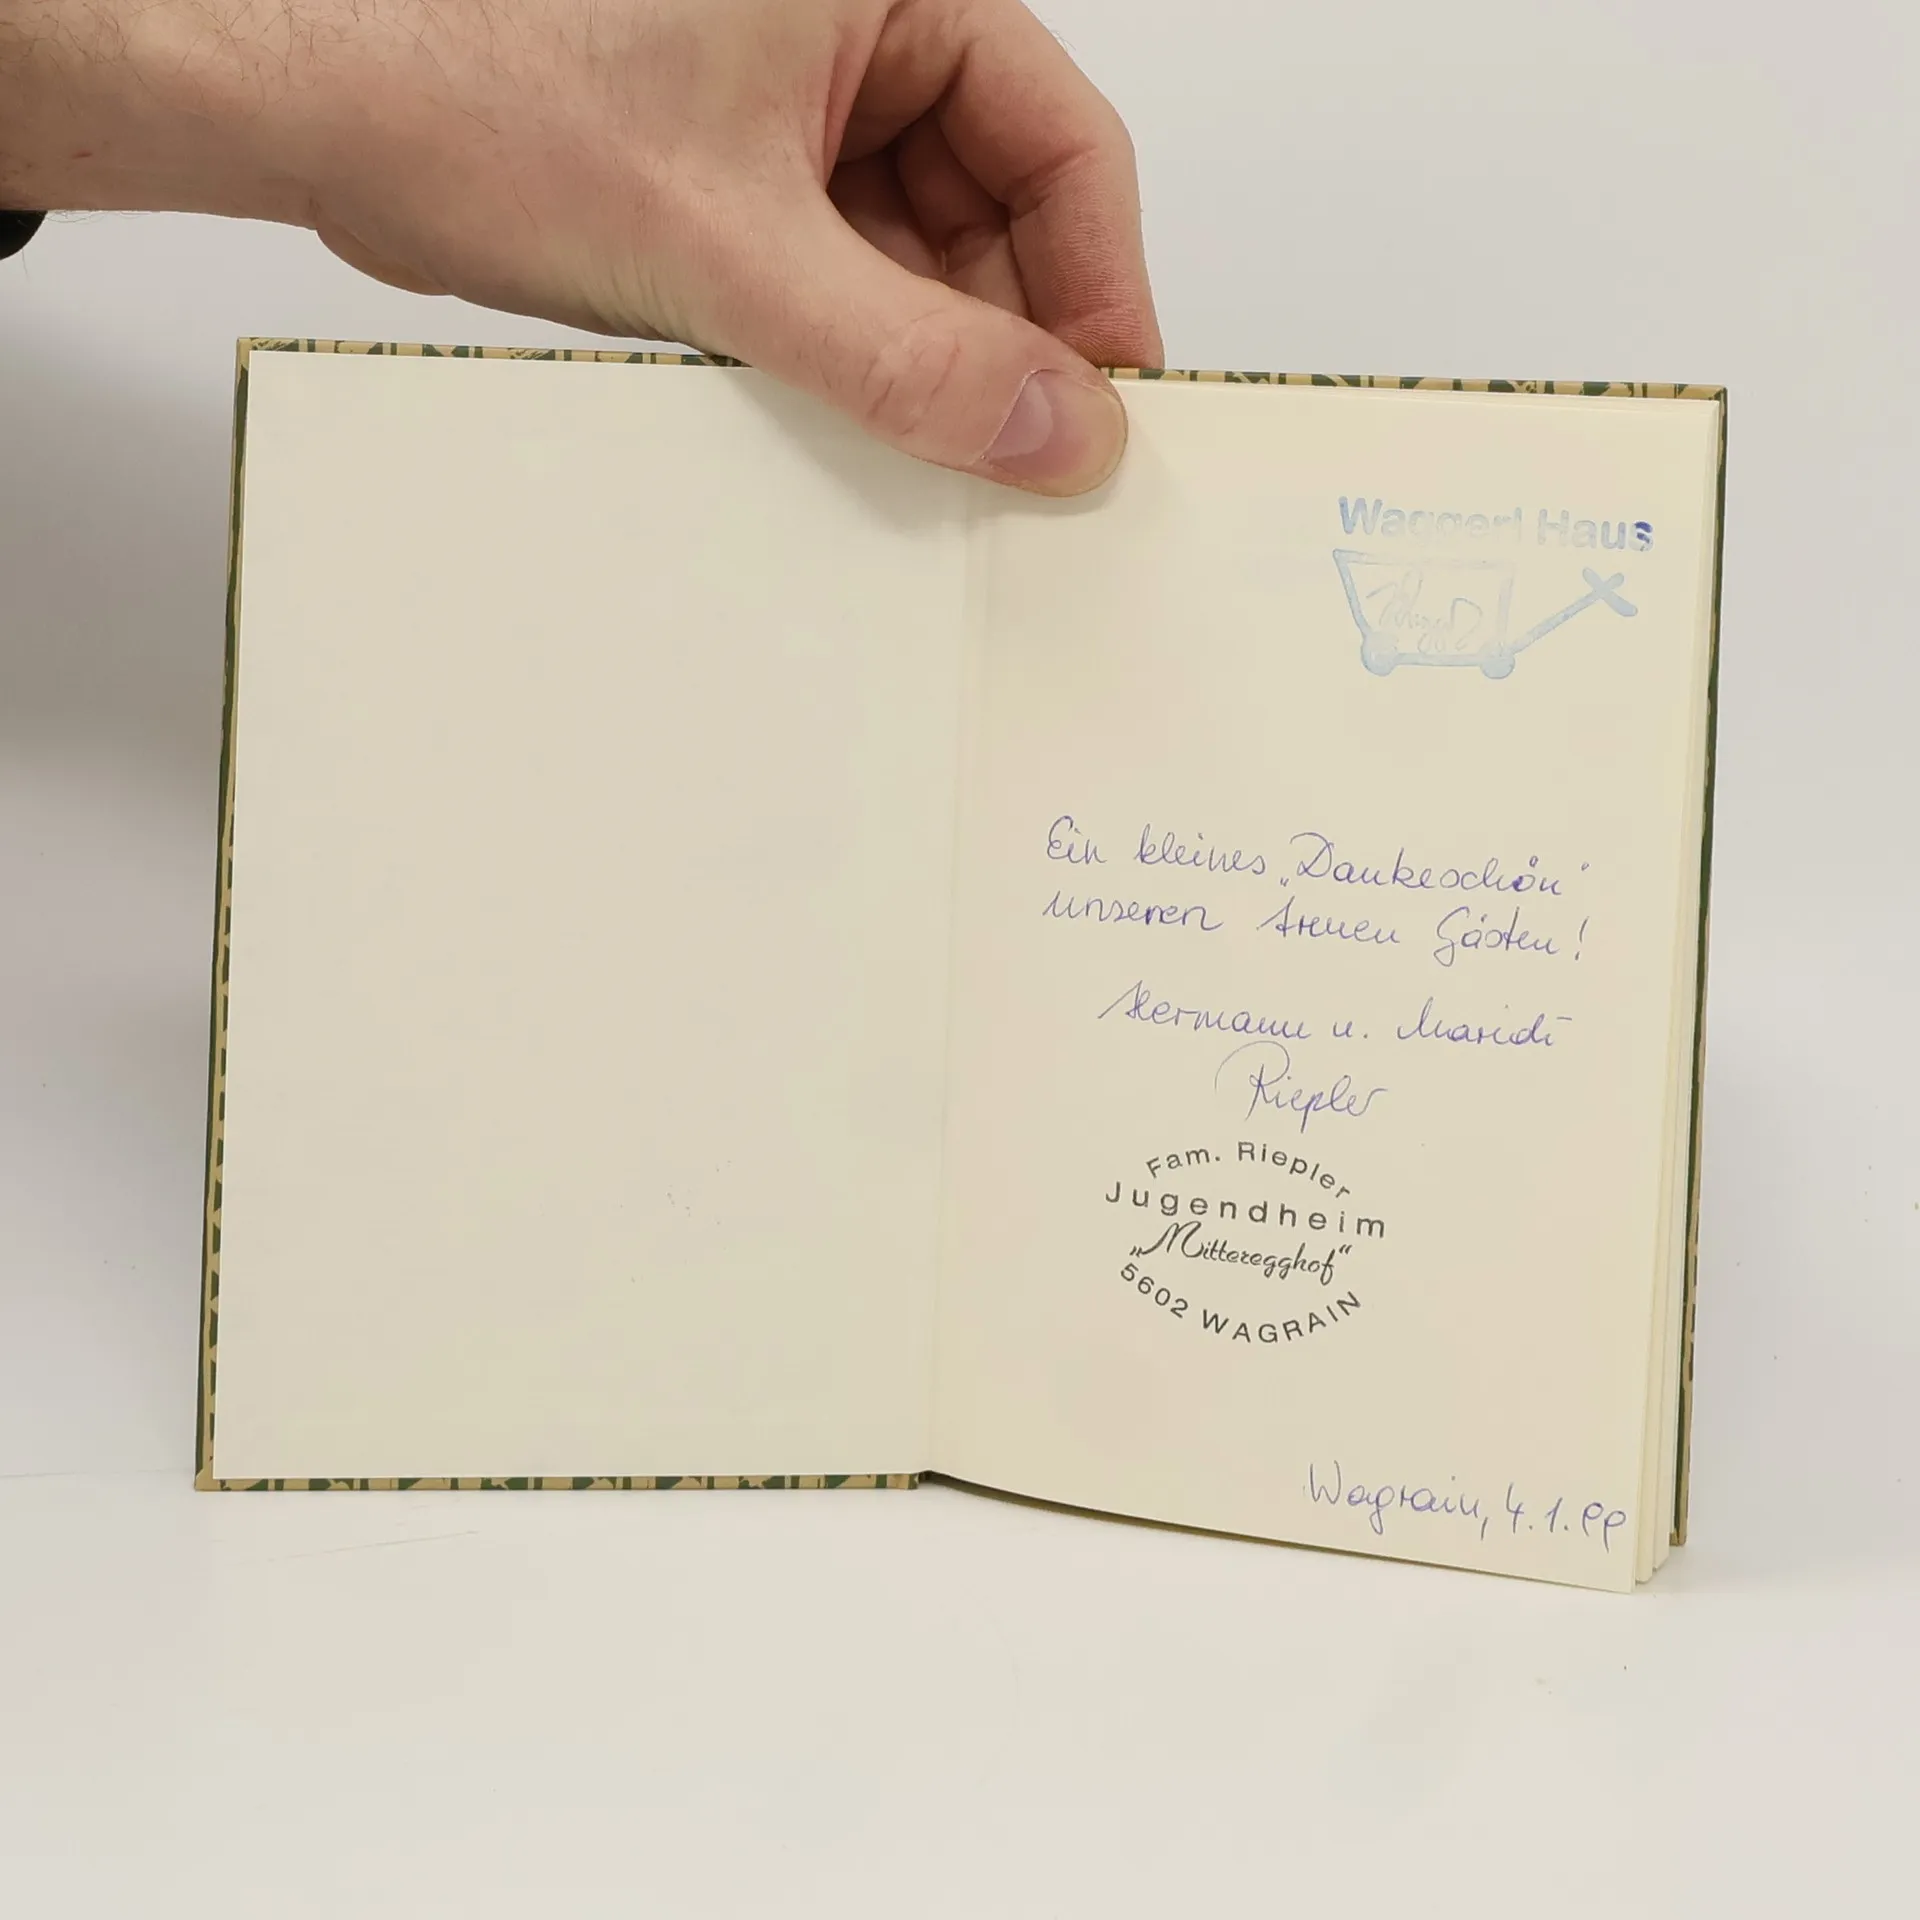 Waggerl Haus
Ein kleines „Dankeschön"
unseren treuen Gästen!
Hermann u. Maridi
Riepler
Fam. Riepler
Jugendheim
„Mitteregghof“
5602 WAGRAIN
Wagrain, 4.1.99